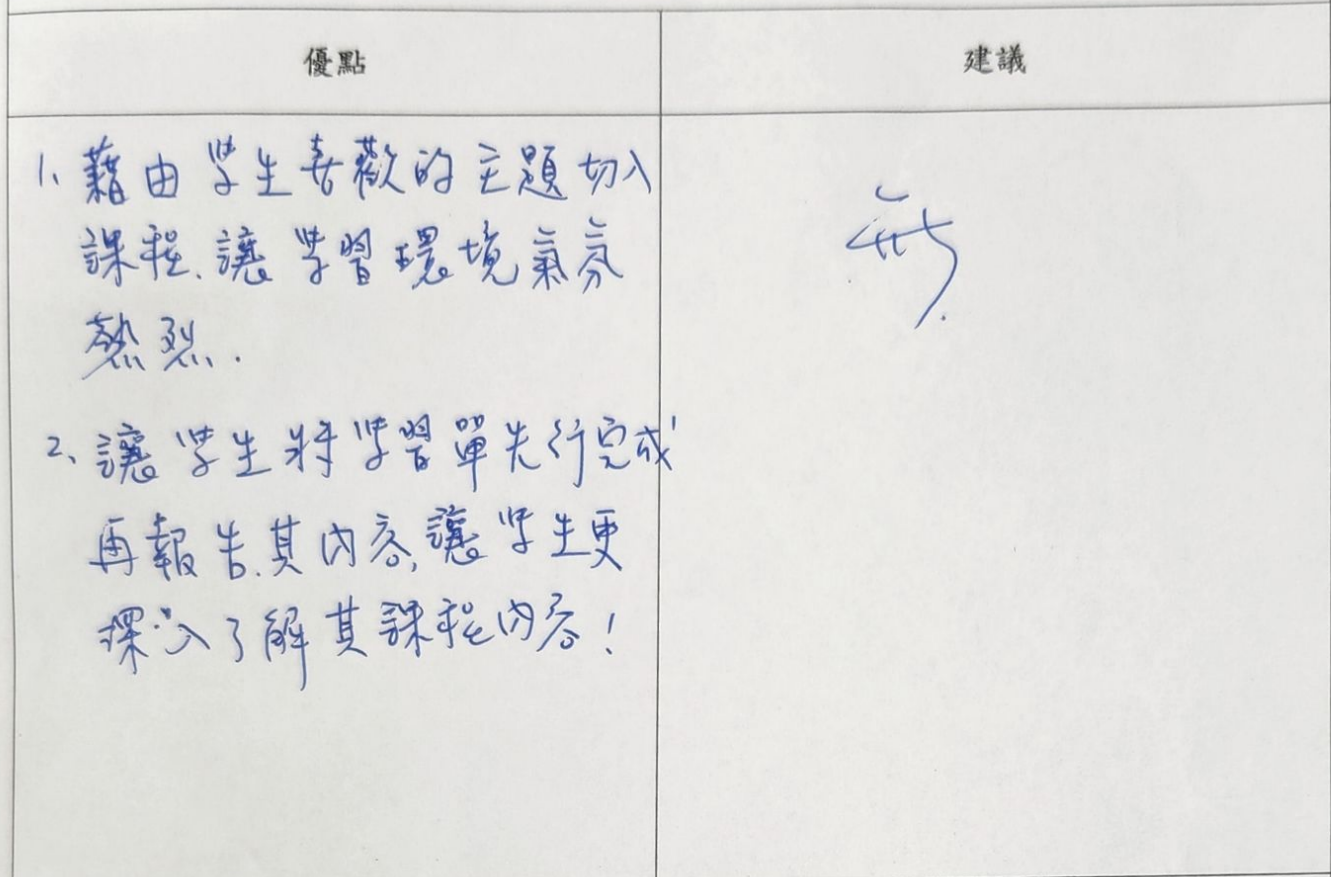 優點
建議
1、藉由學生喜歡的主題切入
課程、讓學習環境氣氛
熱烈.
2、讓學生將學習單先行完成
再報告其內容,讓學生更
深入了解其課程內容!
無.